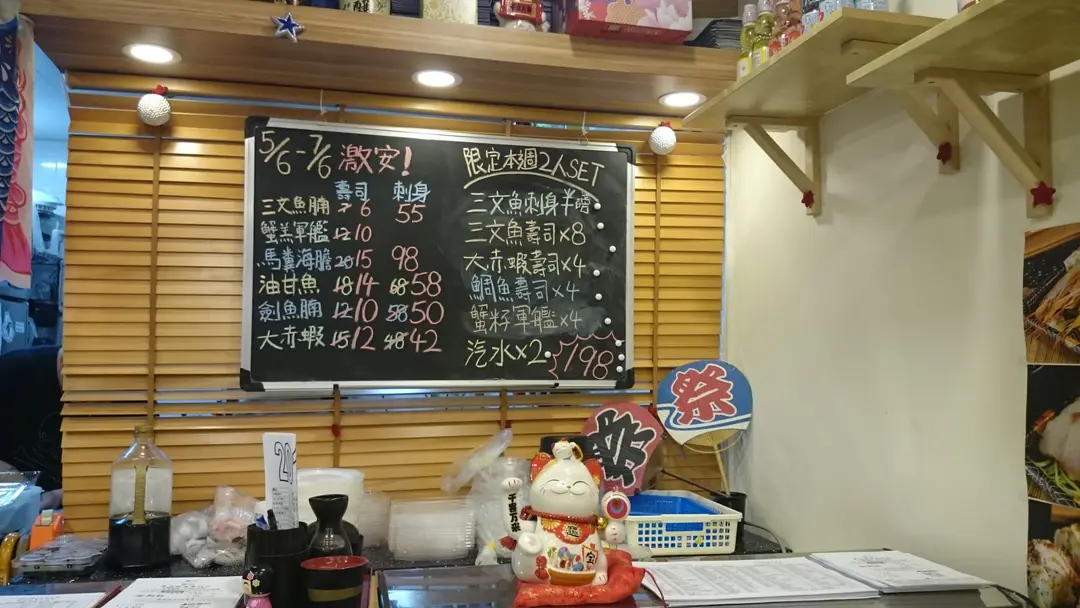 5/6-7/6 激安!
壽司 刺身
三文魚腩 6 55
蟹羔軍艦 12 10
馬糞海膽 20 15 98
油甘魚 18 14 68 58
劍魚腩 12 10 58 50
大赤蝦 15 12 48 42
限定本週2人SET
三文魚刺身半磅
三文魚壽司x8
大赤蝦壽司x4
鯛魚壽司x4
蟹籽軍艦x4
汽水x2 198
祭
祭
20
千客万来